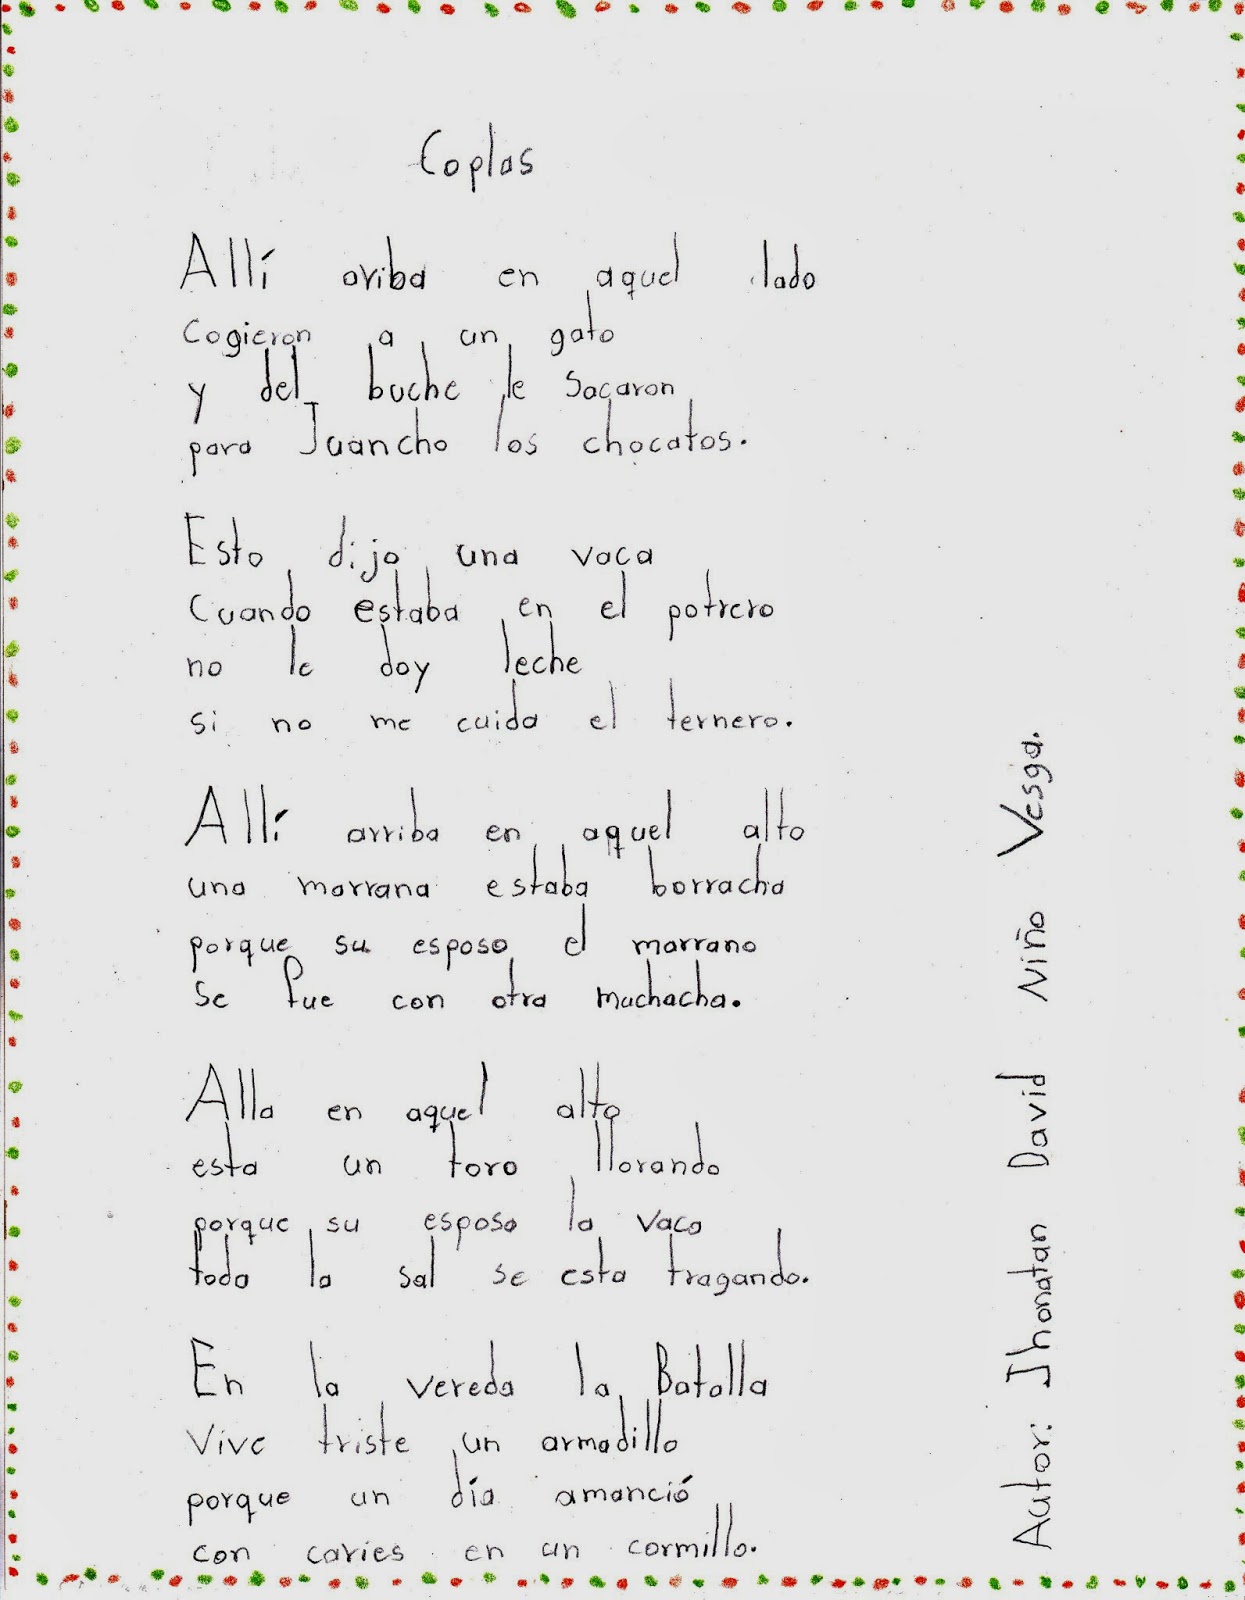 Coplas
Allí ariba en aquel lado
Cogieron a un gato
y del buche le Sacaron
para Juancho los chocatos.
Esto dijo una vaca
Cuando estaba en el potrero
no le doy leche
si no me cuida el ternero.
Allí arriba en aquel alto
una marrana estaba borracha
porque su esposo el marrano
Se fue con otra muchacha.
Alla en aquel alto
esta un toro llorando
porque su esposa la vaca
toda la sal se esta tragando.
En la vereda la Batalla
Vive triste un armadillo
porque un día amanció
con caries en un cormillo.
Autor: Jhonatan David Niño Vesga.